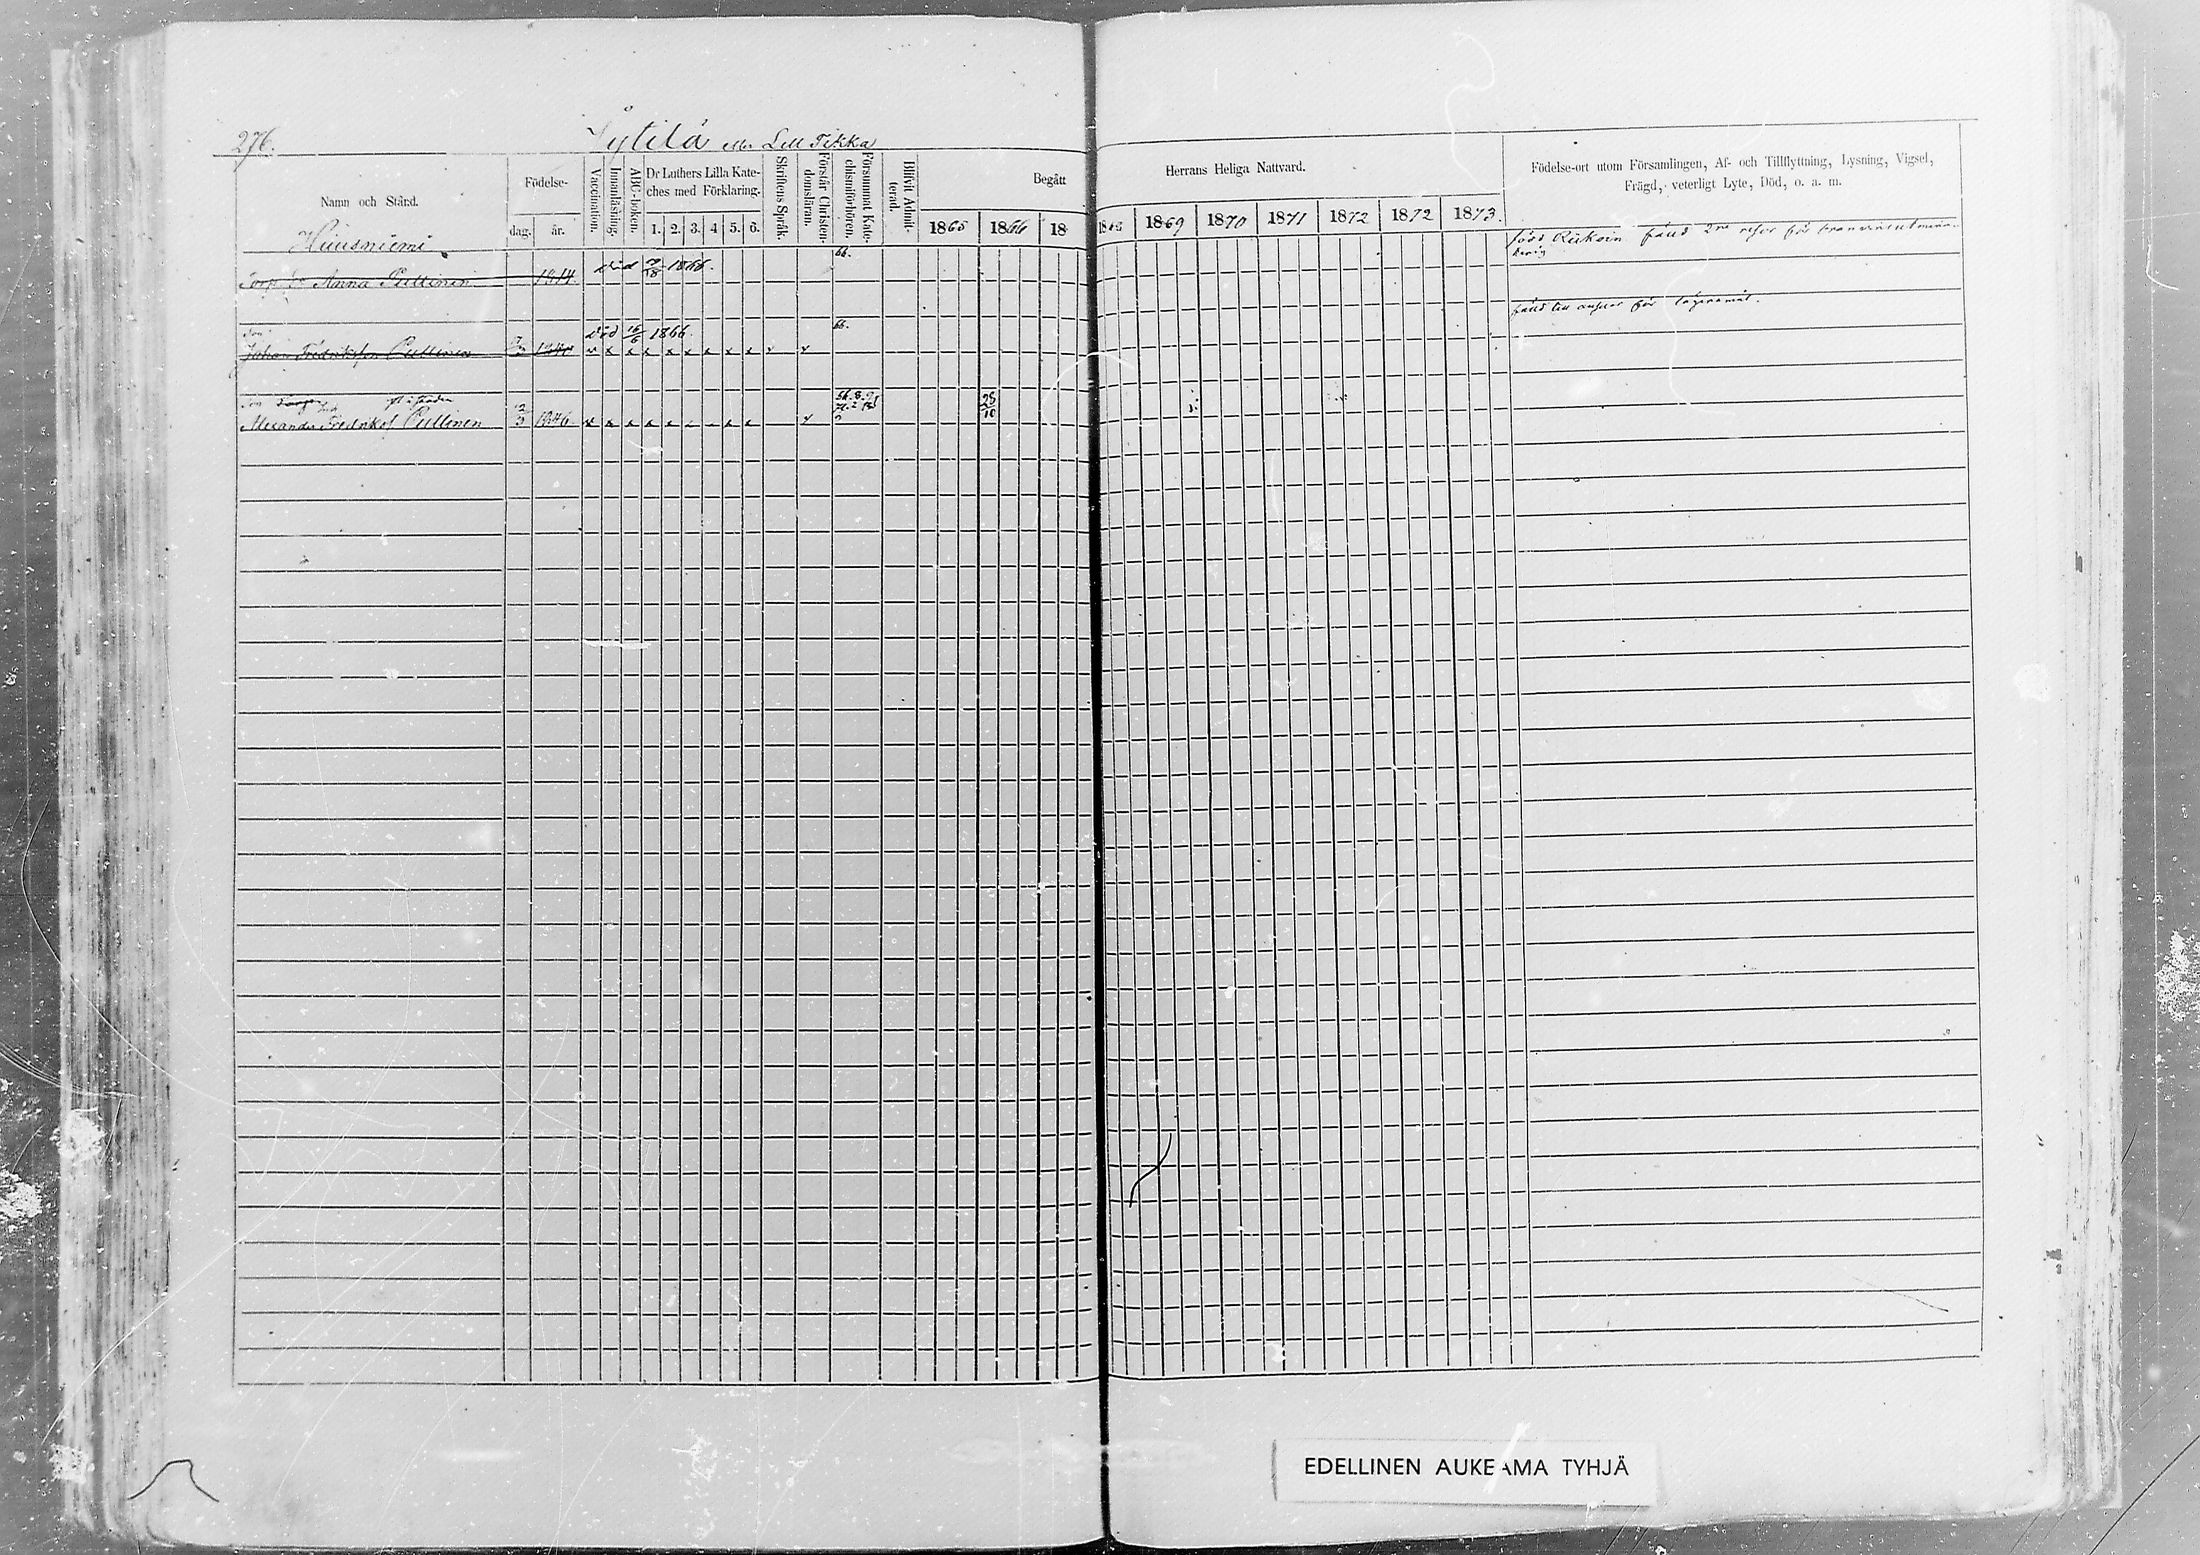 276.
Sytilä eller Lill Tikka
Namn och Stånd.
Födelse-
dag.
år.
Vaccination.
Innanläsning.
ABC-boken.
Dr Luthers Lilla Kate-
ches med Förklaring.
1. 2. 3. 4 5. 6.
Skriftens Språk.
Förstår Christen-
domsläran.
Försummat Kate-
chismiförhören.
Blifvit Admit-
terad.
Begått
1865 1866 18
Herrans Heliga Nattvard.
1869 1870 1871 1872 1872 1873.
Födelse-ort utom Församlingen, Af- och Tillflyttning, Lysning, Vigsel,
Frägd, veterligt Lyte, Död, o. a. m.
Huusniemi
Anna Pullinen 1814. död 1866. 66.
född 2ne resor för
för lägersmål.
son
Johan Fredriksson Pullinen död 16/6 1866. 66.
son
Alexander Fredriksson Pullinen 1846
EDELLINEN AUKEAMA TYHJÄ